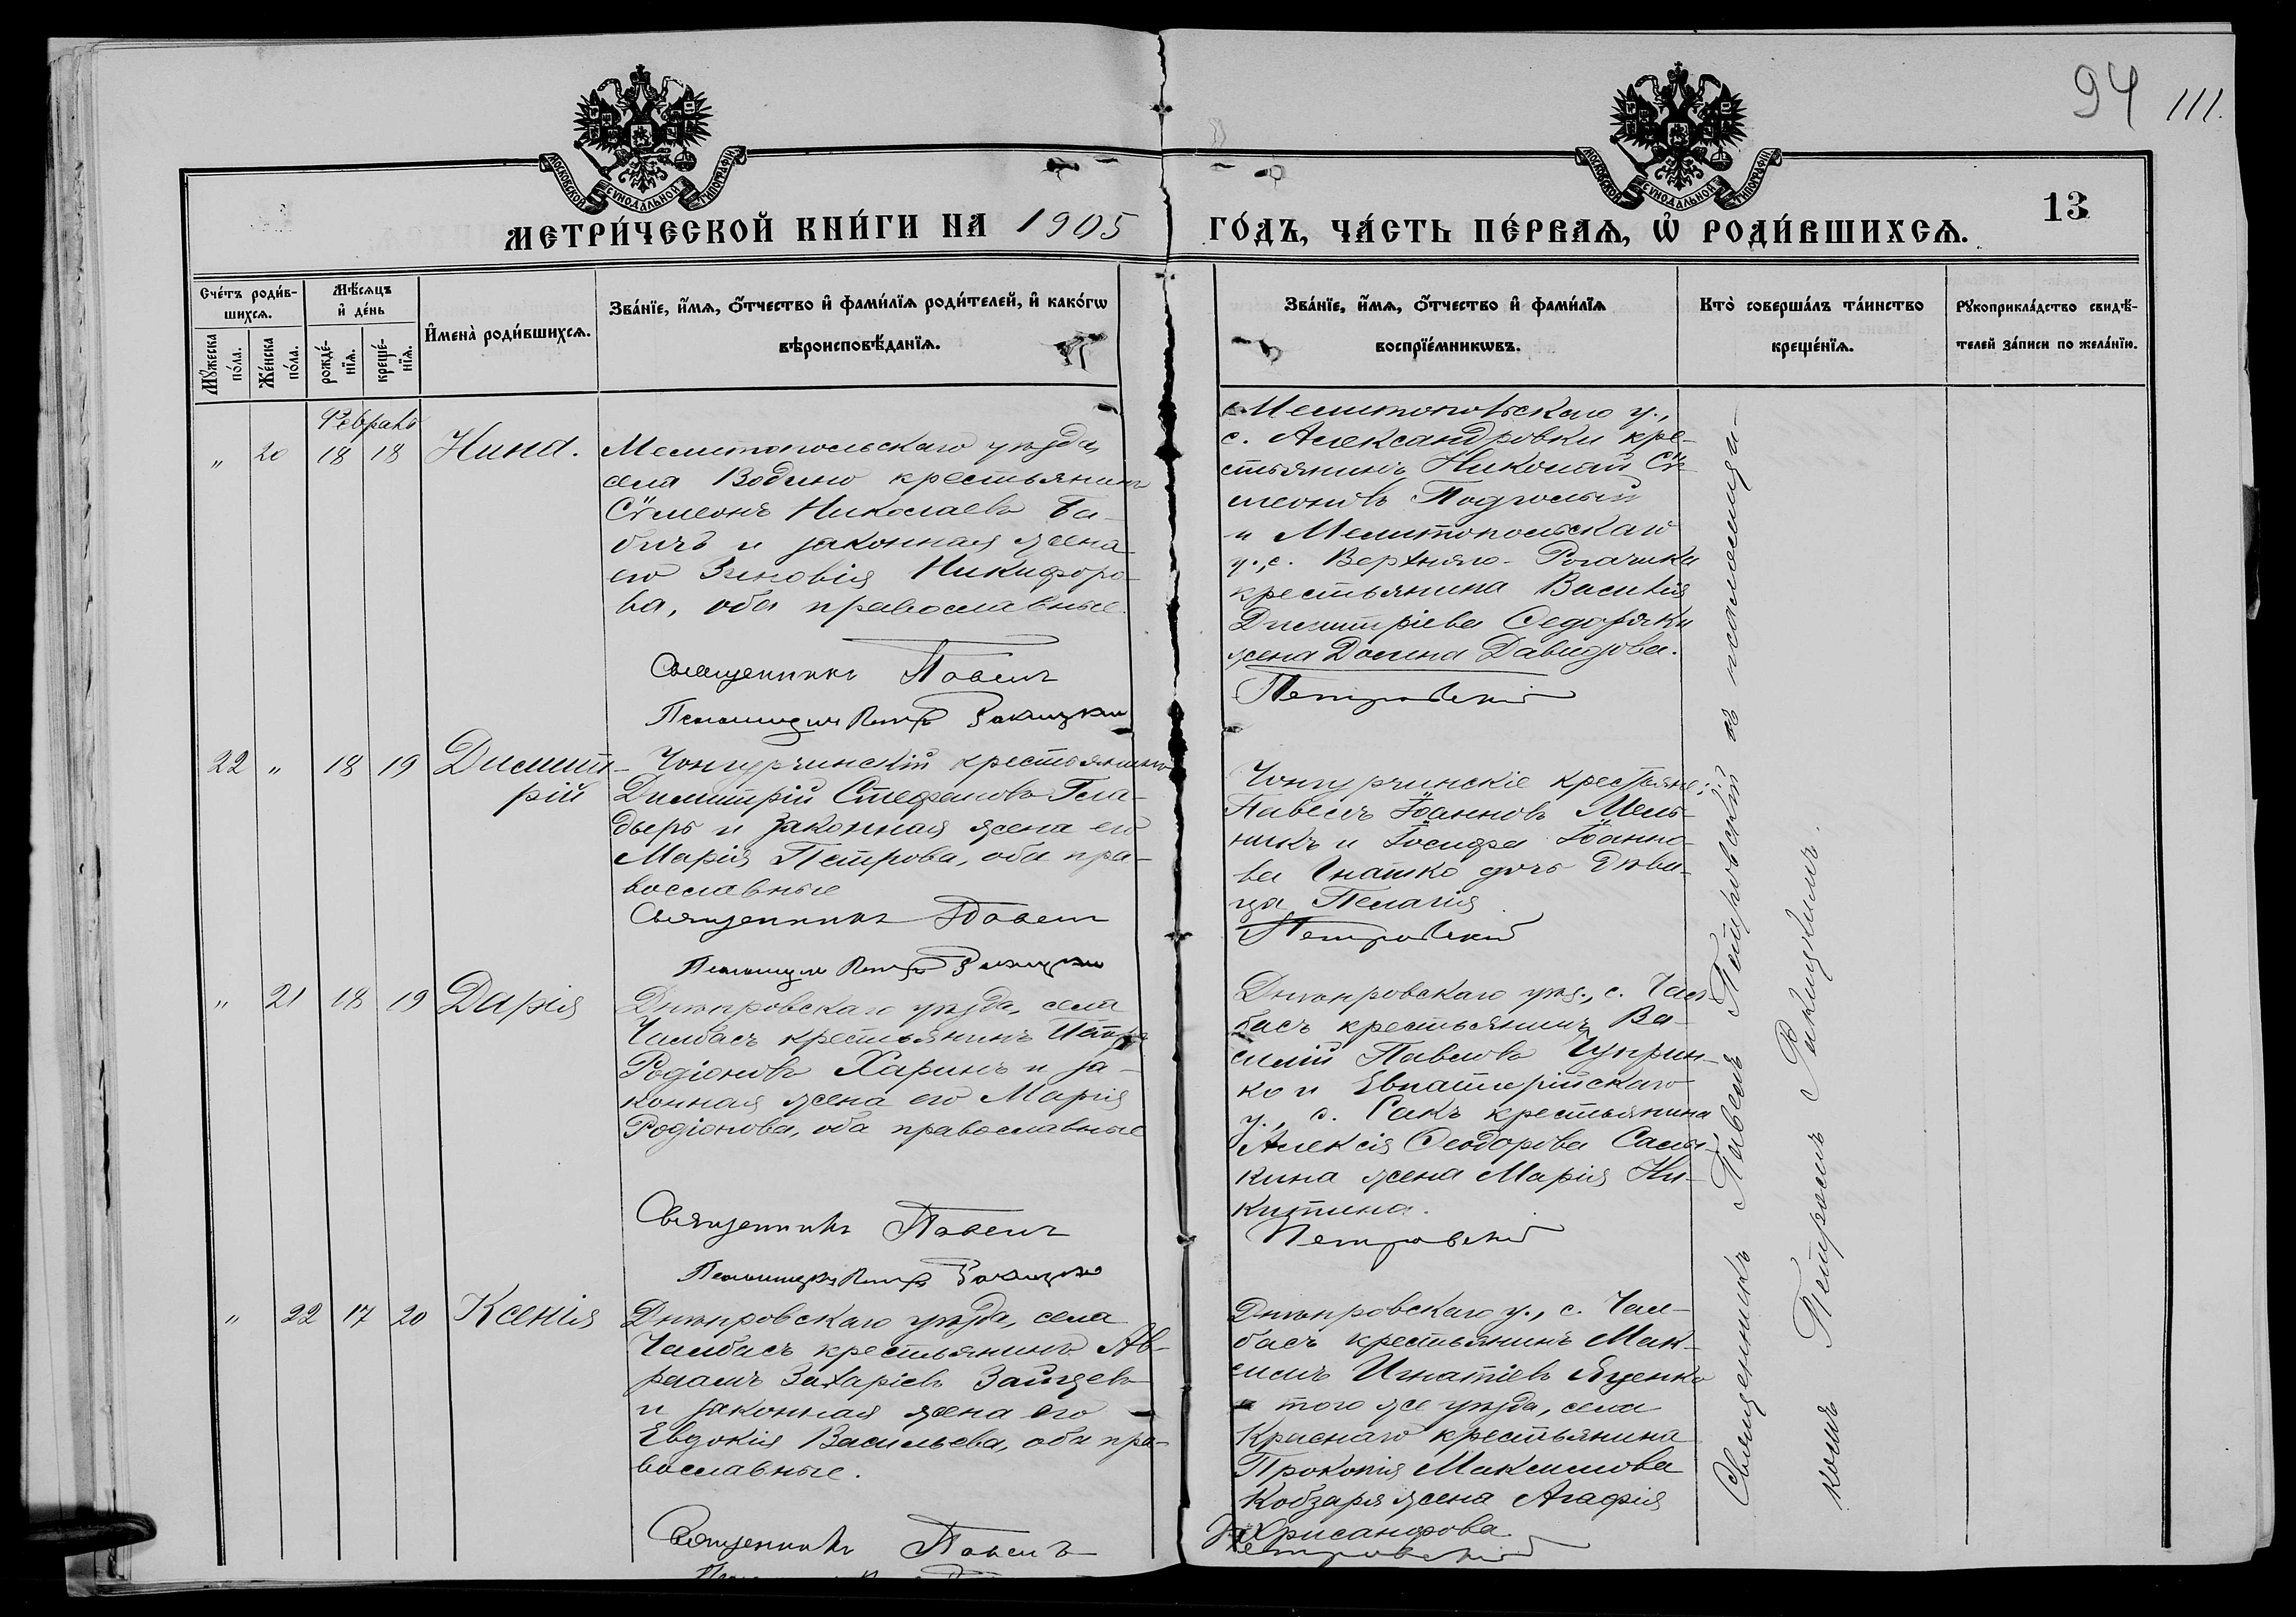 94 111.
МОСКОВСКОЙ СѴНОДАЛЬНОЙ ТИПОГРАФІИ
МОСКОВСКОЙ СѴНОДАЛЬНОЙ ТИПОГРАФІИ
13
МЕТРИ́ЧЕСКОЙ КНИ́ГИ НА 1905
ГО́ДЪ, ЧА́СТЬ ПЕ́РВАѦ, Ѽ РОДИ́ВШИХСѦ.
Сче́тъ роди́в-
шихсѧ.
Мꙋ́жеска по́ла.
Же́нска по́ла.
Мѣ́сѧцъ
и҆ де́нь
рожде́-
нїѧ.
креще́-
нїѧ.
И҆мена̀ роди́вшихсѧ.
Зва́нїе, и҆́мѧ, ѻ҆́тчество и҆ фами́лїѧ роди́телей, и҆ како́гѡ
вѣроисповѣ́данїѧ.
Зва́нїе, и҆́мѧ, ѻ҆́тчество и҆ фами́лїѧ
воспрїе́мникѡвъ.
Кто̀ соверша́лъ та́инство
креще́нїѧ.
Рꙋкоприкла́дство свидѣ́-
телей за́писи по жела́нїю.
Февраль
" 20 18 18 Нина.
Мелитопольскаго уѣзда,
села Водяно крестьянинъ
Сѵмеонъ Николаевъ Ба-
бичъ и законная жена
его Зиновія Никифоро-
ва, оба православные.
Священникъ Павелъ
Псаломщикъ Петръ Ракицкій
Мелитопольскаго у.,
с. Александровки кре-
стьянинъ Николай Сѵ-
меоновъ Подголый
и Мелитопольскаго
у., с. Верхняго-Рогачика
крестьянина Василія
Димитріева Сидоряки
жена Домна Давидова.
Петровскій
22 " 18 19 Димит-
рій
Чонгурчинскій крестьянинъ
Димитрій Стефановъ Гла-
дырь и законная жена его
Марія Петрова, оба пра-
вославные
Священникъ Павелъ
Псаломщикъ Петръ Ракицкій
Чонгурчинскіе крестьяне:
Павелъ Іоанновъ Мель-
никъ и Іосифа Іоанно-
ва Гнатко дочь дѣви-
ца Пелагія
Петровскій
" 21 18 19 Дарія
Днѣпровскаго уѣзда, села
Чалбасъ крестьянинъ
Родіоновъ Харинъ и за-
конная жена его Марія
Родіонова, оба православные
Священникъ Павелъ
Псаломщикъ Петръ Ракицкій
Днѣпровскаго уѣз., с. Чал-
басъ крестьянинъ Ва-
силій Павловъ Чуприн-
ко и Евпаторійскаго
у., с. Сакъ крестьянина
Алексія Ѳеодорова Самы-
кина жена Марія Ни-
китина.
Петровскій
" 22 17 20 Ксенія
Днѣпровскаго уѣзда, села
Чалбасъ крестьянинъ Ав-
раамъ Захаріевъ Зайцевъ
и законная жена его
Евдокія Васильева, оба пра-
вославные.
Священникъ Павелъ
Днѣпровскаго у., с. Чал-
басъ крестьянинъ Мак-
симъ Игнатіевъ Яценко
и того же уѣзда, села
Краснаго крестьянина
Прокопія Максимова
Кобзаря жена Агафія
Хрисанфова.
Петровскій
Священникъ Павелъ Петровскій съ псаломщи-
комъ Петромъ Ракицкимъ.